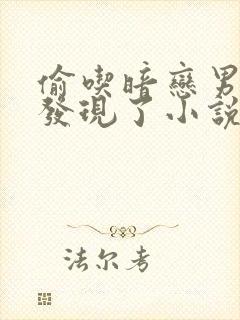 偷喫暗戀男
發現了小說
法尔考